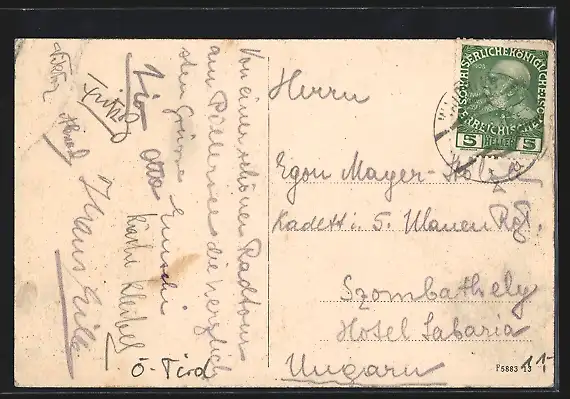 Von einer schönen Radtour
am Pillersee die herzlich
sten Grüsse
Viktor
Fritzl
Hans
Herrn
Egon Mayer-
Kadett i. 5. Ulanen Rgt.
Szombathely
Hotel Sabaria
Ungarn
Ö-Tirol
KAISERLICHE KÖNIGLICHE
ÖSTERREICHISCHE
5 HELLER 5
F5883 13
11,-